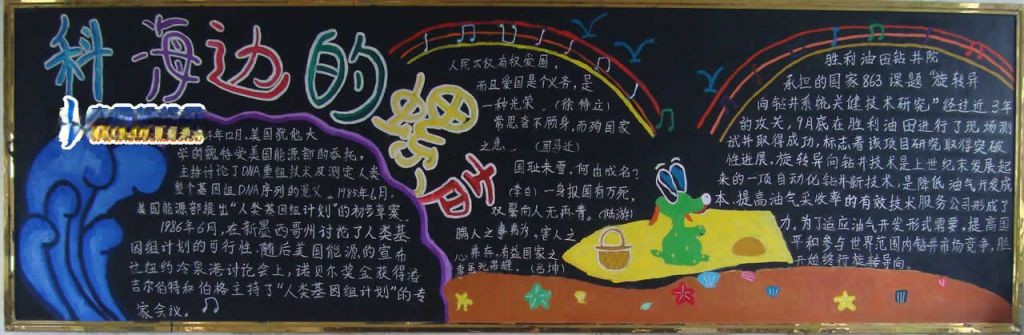 科海边的
声
年12月,美国犹他大
学的魏特受美国能源部的委托,
主持讨论了DNA重组技术及测定人类
整个基因组DNA序列的意义。1985年6月,
美国能源部提出"人类基因组计划"的初步草案
1986年6月,在新墨西哥州讨论了人类基
因组计划的可行性.随后美国能源的宣布
纽约冷泉港讨论会上,诺贝尔奖金获得者
吉尔伯特和伯格主持了"人类基因组计划"的专
家会议。
人民不仅有权爱国,
而且爱国是个义务,是
一种光荣。(徐特立)
常思奋不顾身,而殉国家
之急。(司马迁)
国耻未雪,何由成名?
(李白) 一身报国有万死,
双鬓向人无再青。(陆游)
瞒人之事弗为,害人之
心弗存,有益国家之
事虽死弗避.(吕坤)
胜利油田钻井院
承担的国家863课题"旋转导
向钻井系统关健技术研究"经过近3年
的攻关,9月底在胜利油田进行了现场测
试并取得成功,标志着该项目研究取得突破
性进展.旋转导向钻井技术是上世纪末发展起
来的一项自动化钻井新技术,是降低油气开发成
本、提高油气采收率的有效技术服务公司形成了
力,为了适应油气开发形式需要,提高国
平和参与世界范围内钻井市场竞争,胜
开始终行旋转导向.